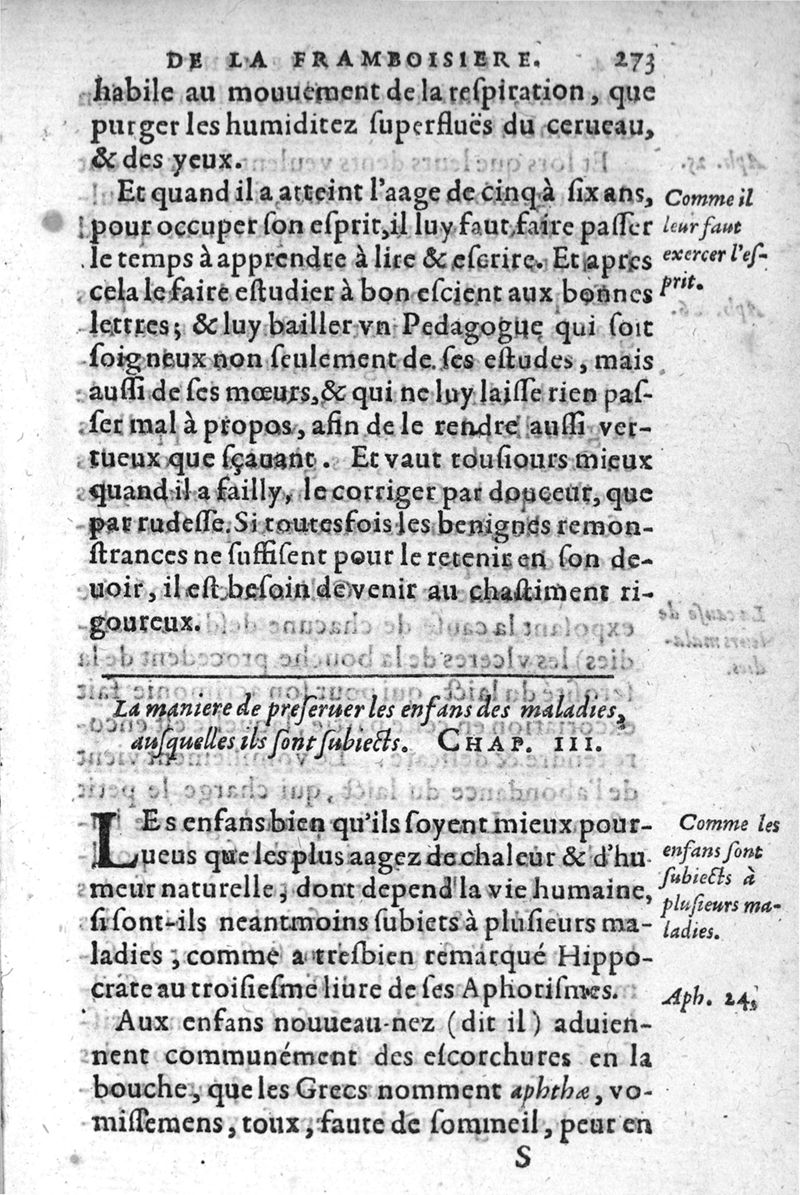 DE LA FRAMBOISIERE. 273
habile au mouuement de la reſpiration, que
purger les humiditez ſuperfluës du cerueau,
& des yeux.
Et quand il a atteint l'aage de cinq à ſix ans,
pour occuper ſon eſprit, il luy faut faire paſſer
le temps à apprendre à lire & eſcrire. Et apres
cela le faire eſtudier à bon eſcient aux bonnes
lettres; & luy bailler vn Pedagogue qui ſoit
ſoigneux non ſeulement de ſes eſtudes, mais
auſſi de ſes mœurs, & qui ne luy laiſſe rien paſ-
ſer mal à propos, afin de le rendre auſſi ver-
tueux que ſçauant. Et vaut touſiours mieux
quand il a failly, le corriger par douceur, que
par rudeſſe. Si toutesfois les benignes remon-
ſtrances ne ſuffiſent pour le retenir en ſon de-
uoir, il eſt beſoin de venir au chaſtiment ri-
goureux.
Comme il
leur faut
exercer l'eſ-
prit.
La maniere de preſeruer les enfans des maladies,
auſquelles ils ſont ſubiects. CHAP. III.
LEs enfans bien qu'ils ſoyent mieux pour-
ueus que les plus aagez de chaleur & d'hu
meur naturelle, dont depend la vie humaine,
ſi ſont-ils neantmoins ſubiets à pluſieurs ma-
ladies; comme a tresbien remarqué Hippo-
crate au troiſieſme liure de ſes Aphoriſmes.
Aux enfans nouueau-nez (dit il) aduien-
nent communément des eſcorchures en la
bouche, que les Grecs nomment aphthæ, vo-
miſſemens, toux, faute de ſommeil, peur en
Comme les
enfans ſont
ſubiects à
pluſieurs ma-
ladies.
Aph. 24.
S